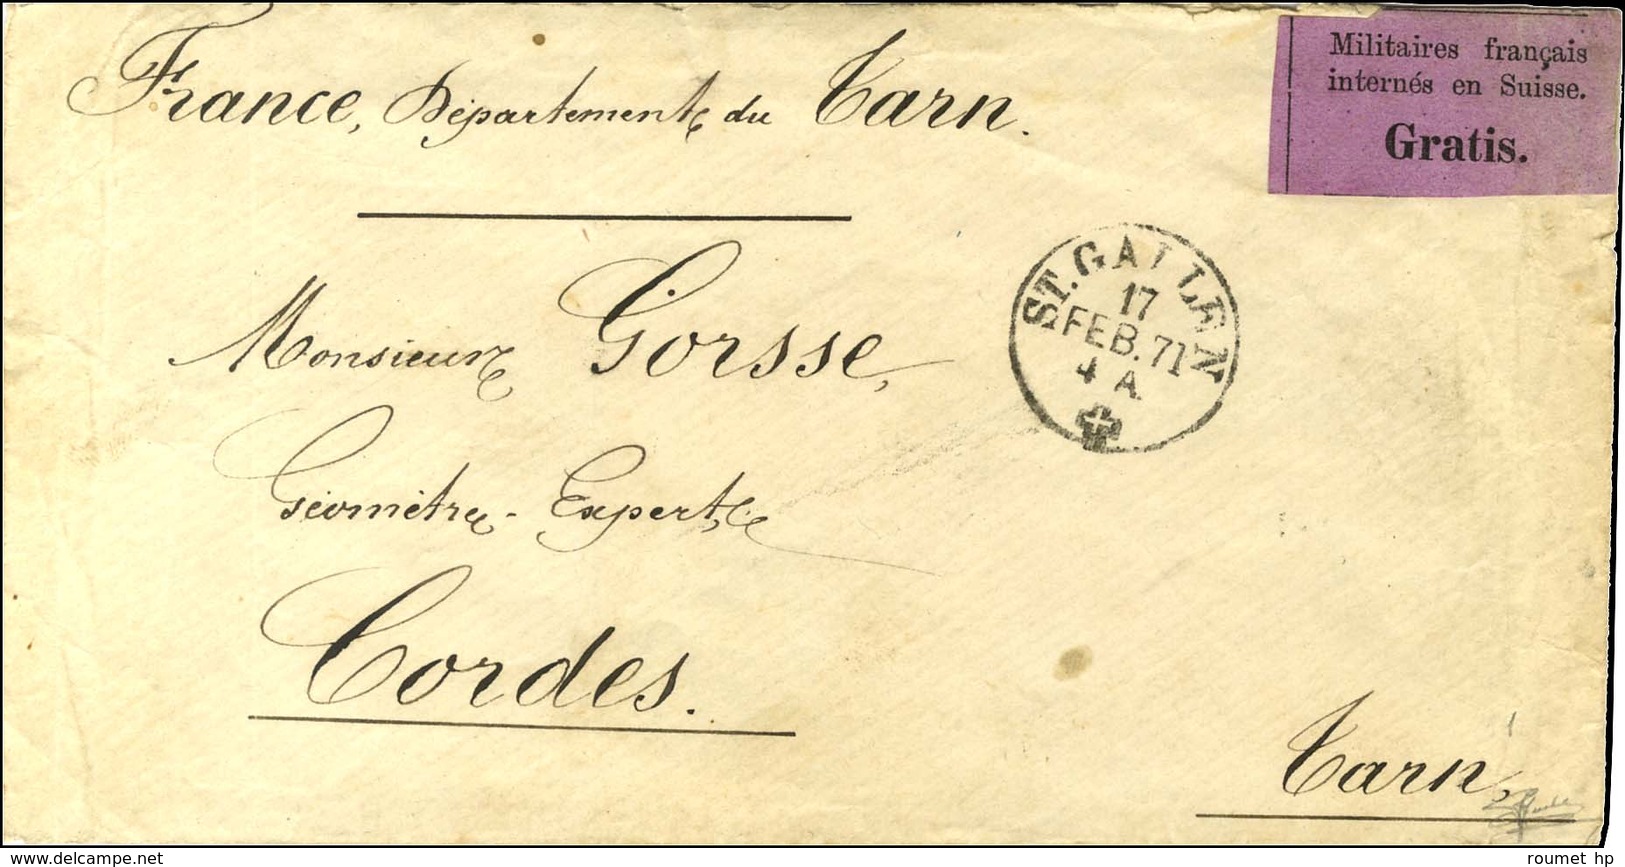 France, Département du Tarn.
Militaires français
internés en Suisse.
Gratis.
ST. GALLEN
17
FEB. 71
4 A
Monsieur Gorsse,
Géomètre-Expert,
Cordes.
Tarn,
www.delcampe.net
roumet hp